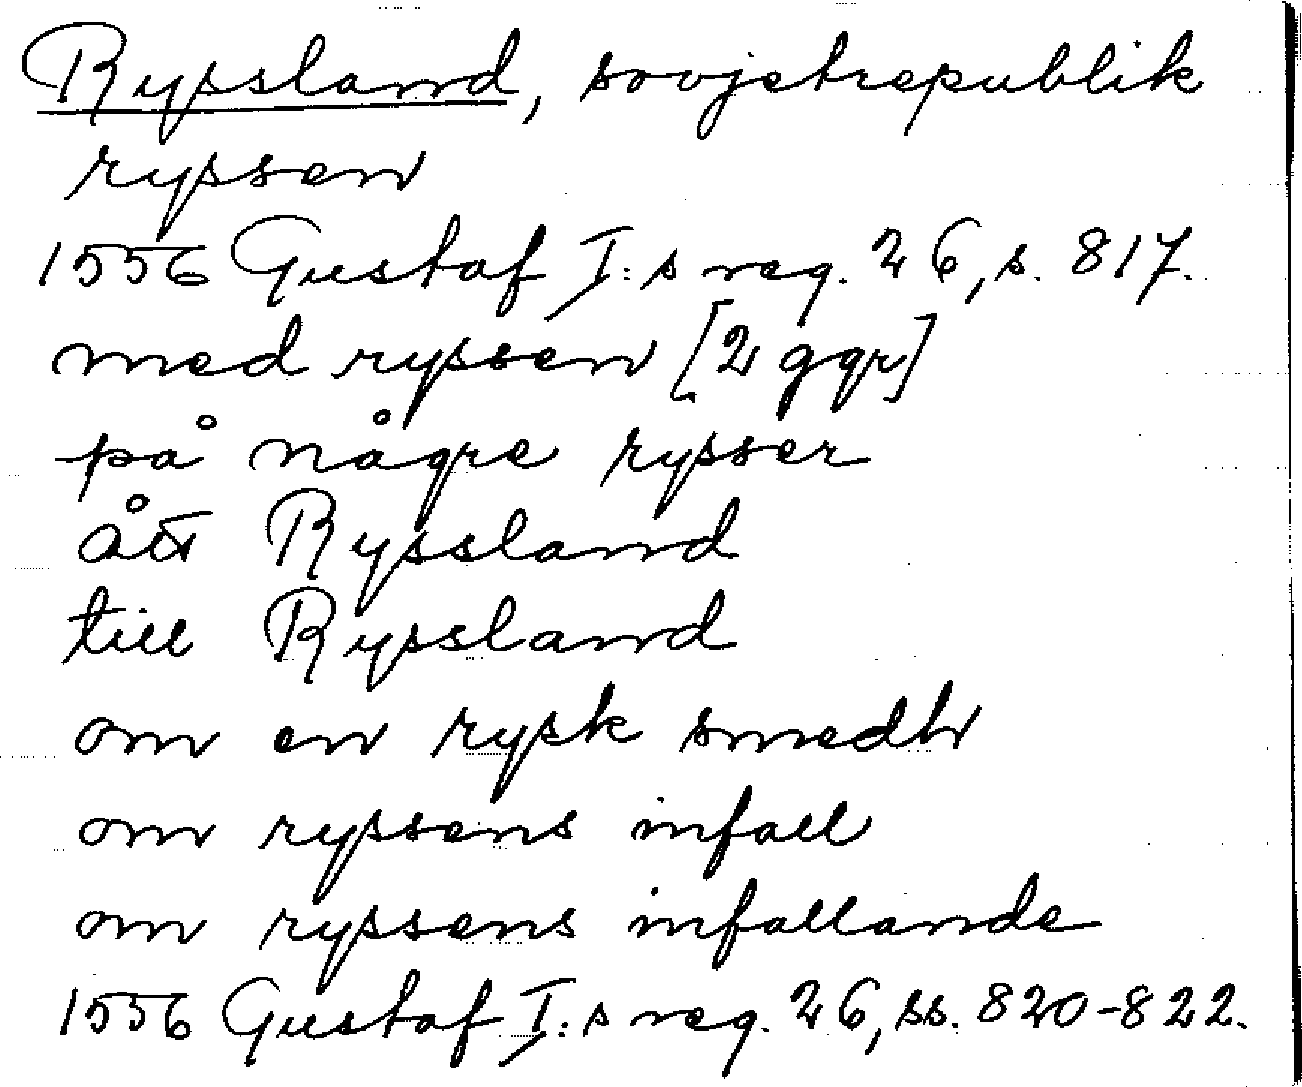 Ryssland, sovjetrepublik
ryssen
1556 Gustaf I:s reg. 26, s. 817.
med ryssen [2 ggr]
på någre rysser
ått Ryssland
till Ryssland
om en rysk smedh
om ryssens infall
om ryssens infallande
1556 Gustaf I:s reg. 26, ss. 820-822.